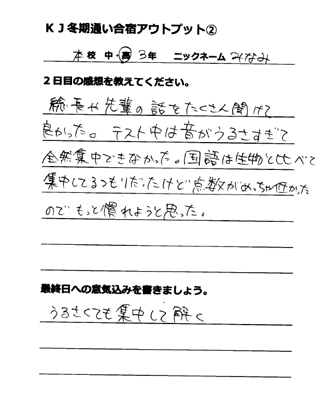 KJ冬期通い合宿アウトプット②
本校 中・高 3年 ニックネーム みなみ
2日目の感想を教えてください。
総長や先輩の話をたくさん聞けて
良かった。テスト中は音がうるさすぎて
全然集中できなかった。国語は生物と比べて
集中してるつもりだったけど点数がめっちゃ低かった
のでもっと慣れようと思った。
最終日への意気込みを書きましょう。
うるさくても集中して解く